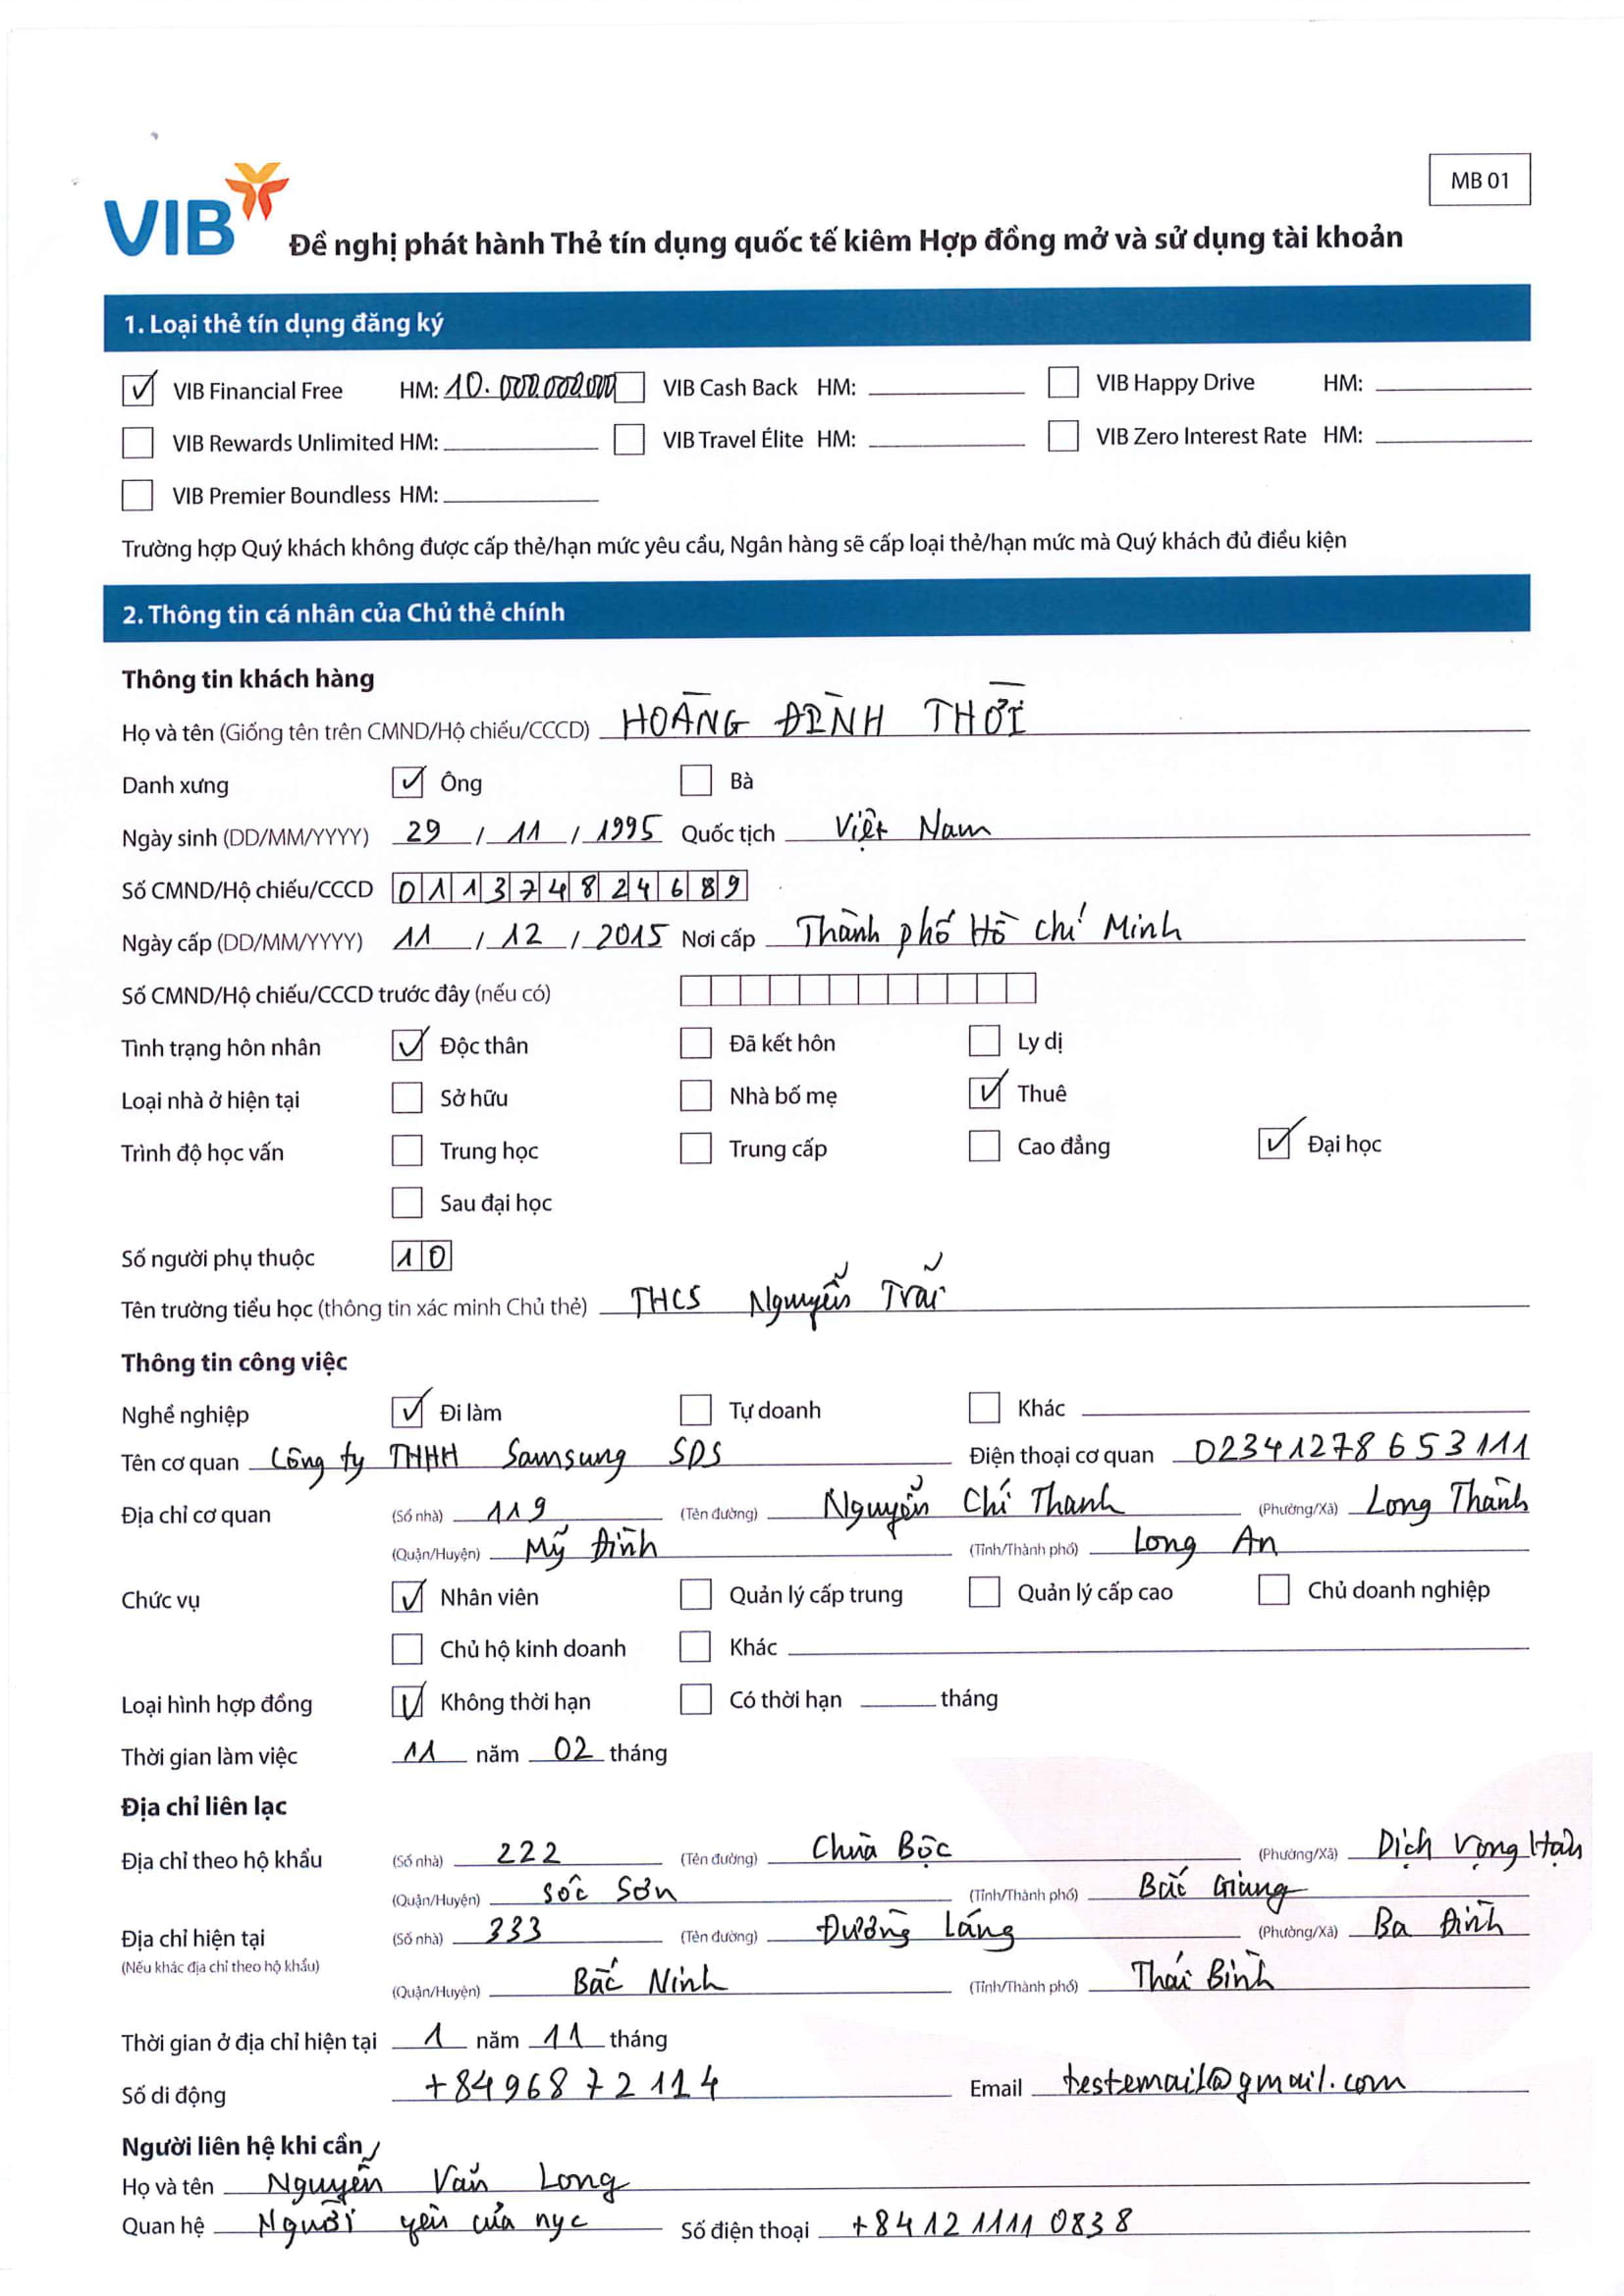 MB 01
VIB
Đề nghị phát hành Thẻ tín dụng quốc tế kiêm Hợp đồng mở và sử dụng tài khoản
1. Loại thẻ tín dụng đăng ký
VIB Financial Free HM: 10.000.000.000 VIB Cash Back HM: VIB Happy Drive HM:
VIB Rewards Unlimited HM: VIB Travel Élite HM: VIB Zero Interest Rate HM:
VIB Premier Boundless HM:
Trường hợp Quý khách không được cấp thẻ/hạn mức yêu cầu, Ngân hàng sẽ cấp loại thẻ/hạn mức mà Quý khách đủ điều kiện
2. Thông tin cá nhân của Chủ thẻ chính
Thông tin khách hàng
Họ và tên (Giống tên trên CMND/Hộ chiếu/CCCD) HOÀNG ĐÌNH THỜI
Danh xưng Ông Bà
Ngày sinh (DD/MM/YYYY) 29 / 11 / 1995 Quốc tịch Việt Nam
Số CMND/Hộ chiếu/CCCD 011374824689
Ngày cấp (DD/MM/YYYY) 11 / 12 / 2015 Nơi cấp Thành phố Hồ Chí Minh
Số CMND/Hộ chiếu/CCCD trước đây (nếu có)
Tình trạng hôn nhân Độc thân Đã kết hôn Ly dị
Loại nhà ở hiện tại Sở hữu Nhà bố mẹ Thuê
Trình độ học vấn Trung học Trung cấp Cao đẳng Đại học
Sau đại học
Số người phụ thuộc 10
Tên trường tiểu học (thông tin xác minh Chủ thẻ) THCS Nguyễn Trãi
Thông tin công việc
Nghề nghiệp Đi làm Tự doanh Khác
Tên cơ quan Công ty THHH Samsung SDS Điện thoại cơ quan 02341278653111
Địa chỉ cơ quan (Số nhà) 119 (Tên đường) Nguyễn Chí Thanh (Phường/Xã) Long Thành
(Quận/Huyện) Mỹ Đình (Tỉnh/Thành phố) Long An
Chức vụ Nhân viên Quản lý cấp trung Quản lý cấp cao Chủ doanh nghiệp
Chủ hộ kinh doanh Khác
Loại hình hợp đồng Không thời hạn Có thời hạn tháng
Thời gian làm việc 11 năm 02 tháng
Địa chỉ liên lạc
Địa chỉ theo hộ khẩu (Số nhà) 222 (Tên đường) Chùa Bộc (Phường/Xã) Dịch Vọng Hậu
(Quận/Huyện) Sóc Sơn (Tỉnh/Thành phố) Bắc Giang
Địa chỉ hiện tại (Số nhà) 333 (Tên đường) Đường Láng (Phường/Xã) Ba Đình
(Nếu khác địa chỉ theo hộ khẩu)
(Quận/Huyện) Bắc Ninh (Tỉnh/Thành phố) Thái Bình
Thời gian ở địa chỉ hiện tại 1 năm 11 tháng
Số di động +84968 72 114 Email testemail@gmail.com
Người liên hệ khi cần
Họ và tên Nguyễn Văn Long
Quan hệ Người yêu của nyc Số điện thoại +84 12 1111 0838